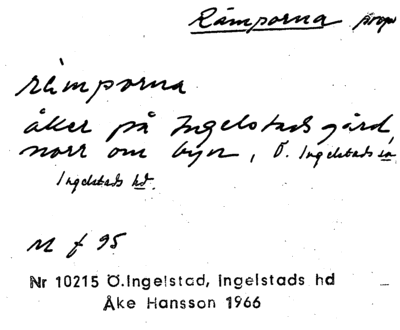 Rämporna propr
rämporna
åker på Ingelstads gård,
norr om byn, Ö. Ingelstads sn
Ingelstads hd.
M f 95
Nr 10215 Ö.Ingelstad, Ingelstads hd
Åke Hansson 1966